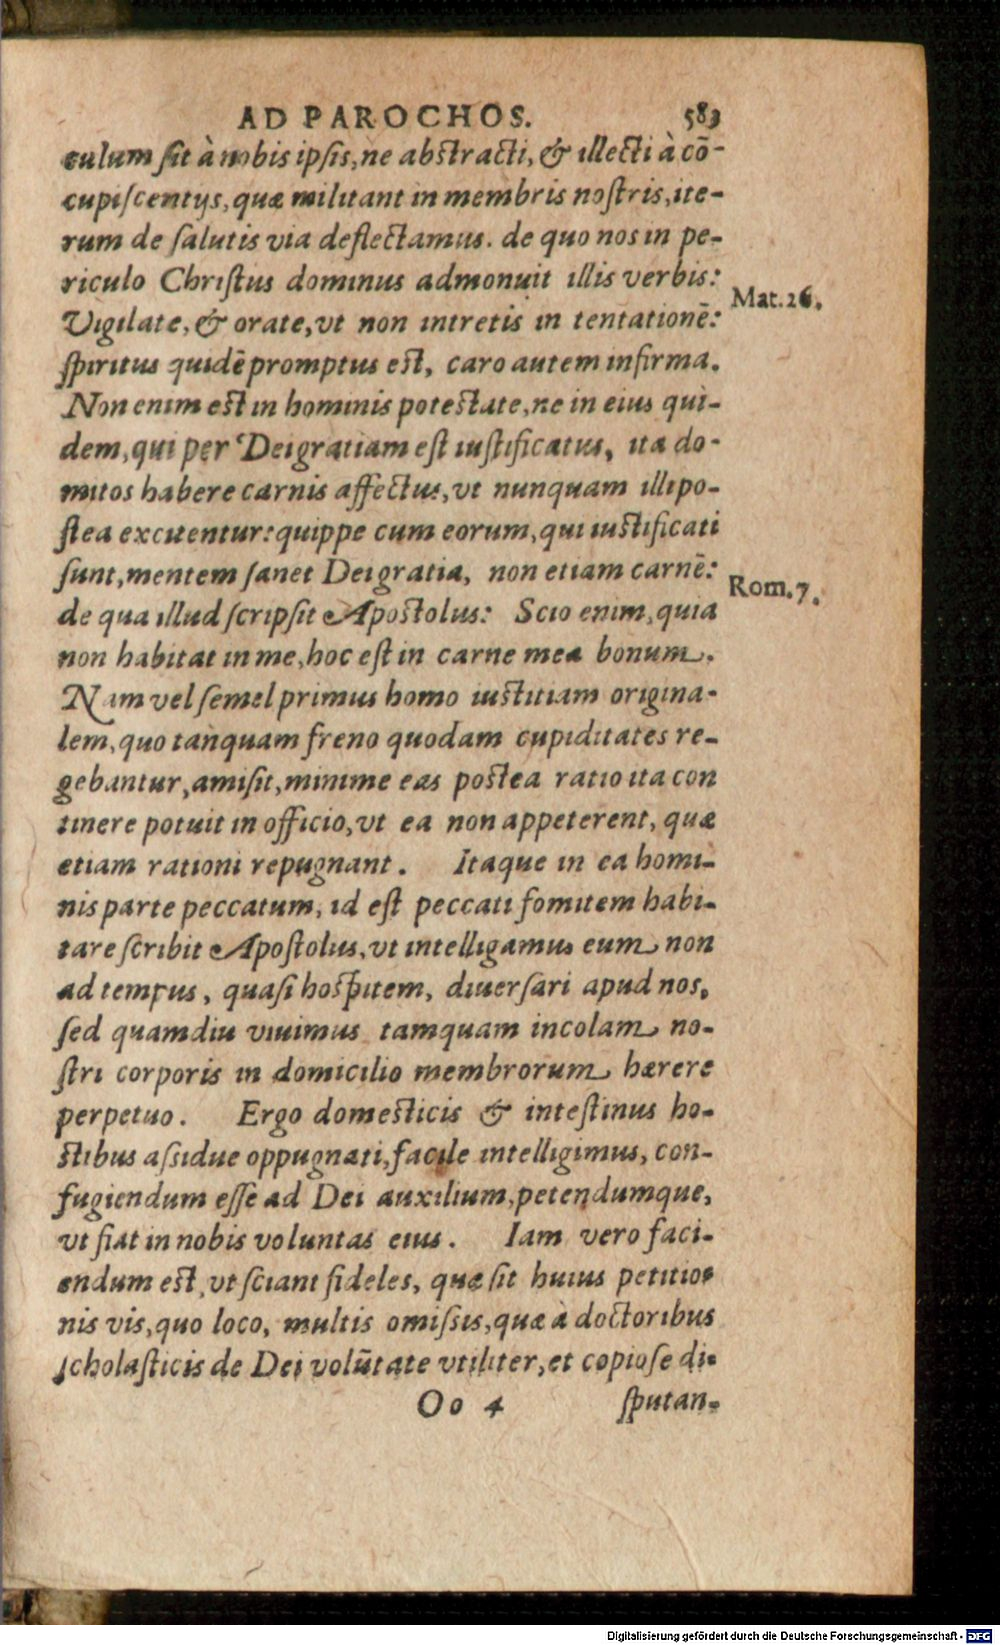 AD PAROCHOS. 583
culum sit à nobis ipsis, ne abstracti, & illecti à cō-
cupiscentijs, quæ militant in membris nostris, ite-
rum de salutis via deflectamus. de quo nos in pe-
riculo Christus dominus admonuit illis verbis:
Mat. 26.
Vigilate, & orate, vt non intretis in tentationē:
spiritus quidē promptus est, caro autem infirma.
Non enim est in hominis potestate, ne in eius qui-
dem, qui per Dei gratiam est iustificatus, ita do-
mitos habere carnis affectus, vt nunquam illi po-
stea excitentur: quippe cum eorum, qui iustificati
sunt, mentem sanet Dei gratia, non etiam carnē:
Rom. 7.
de qua illud scripsit Apostolus: Scio enim, quia
non habitat in me, hoc est in carne mea bonum.
Nam vel semel primus homo iustitiam origina-
lem, quo tanquam freno quodam cupiditates re-
gebantur, amisit, minime eas postea ratio ita con
tinere potuit in officio, vt ea non appeterent, quæ
etiam rationi repugnant. Itaque in ea homi-
nis parte peccatum, id est peccati fomitem habi-
tare scribit Apostolus, vt intelligamus eum non
ad tempus, quasi hospitem, diuersari apud nos,
sed quamdiu viuimus tamquam incolam no-
stri corporis in domicilio membrorum hærere
perpetuo. Ergo domesticis & intestinus ho-
stibus assidue oppugnati, facile intelligimus, con-
fugiendum esse ad Dei auxilium, petendumque,
vt fiat in nobis voluntas eius. Iam vero faci-
endum est, vt sciant fideles, quæ sit huius petitio-
nis vis, quo loco, multis omissis, quæ à doctoribus
scholasticis de Dei volūtate vtiliter, et copiose di-
Oo 4 sputan-
Digitalisierung gefördert durch die Deutsche Forschungsgemeinschaft - DFG